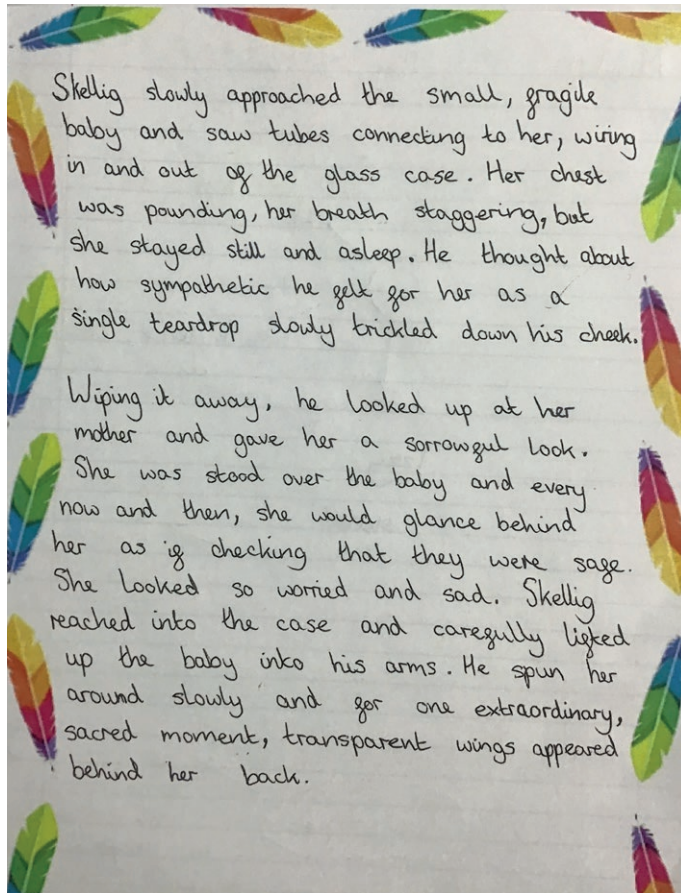 Skellig slowly approached the small, fragile
baby and saw tubes connecting to her, wiring
in and out of the glass case. Her chest
was pounding, her breath staggering, but
she stayed still and asleep. He thought about
how sympathetic he felt for her as a
single teardrop slowly trickled down his cheek.
Wiping it away, he looked up at her
mother and gave her a sorrowful look.
She was stood over the baby and every
now and then, she would glance behind
her as if checking that they were safe.
She looked so worried and sad. Skellig
reached into the case and carefully lifted
up the baby into his arms. He spun her
around slowly and for one extraordinary,
sacred moment, transparent wings appeared
behind her back.